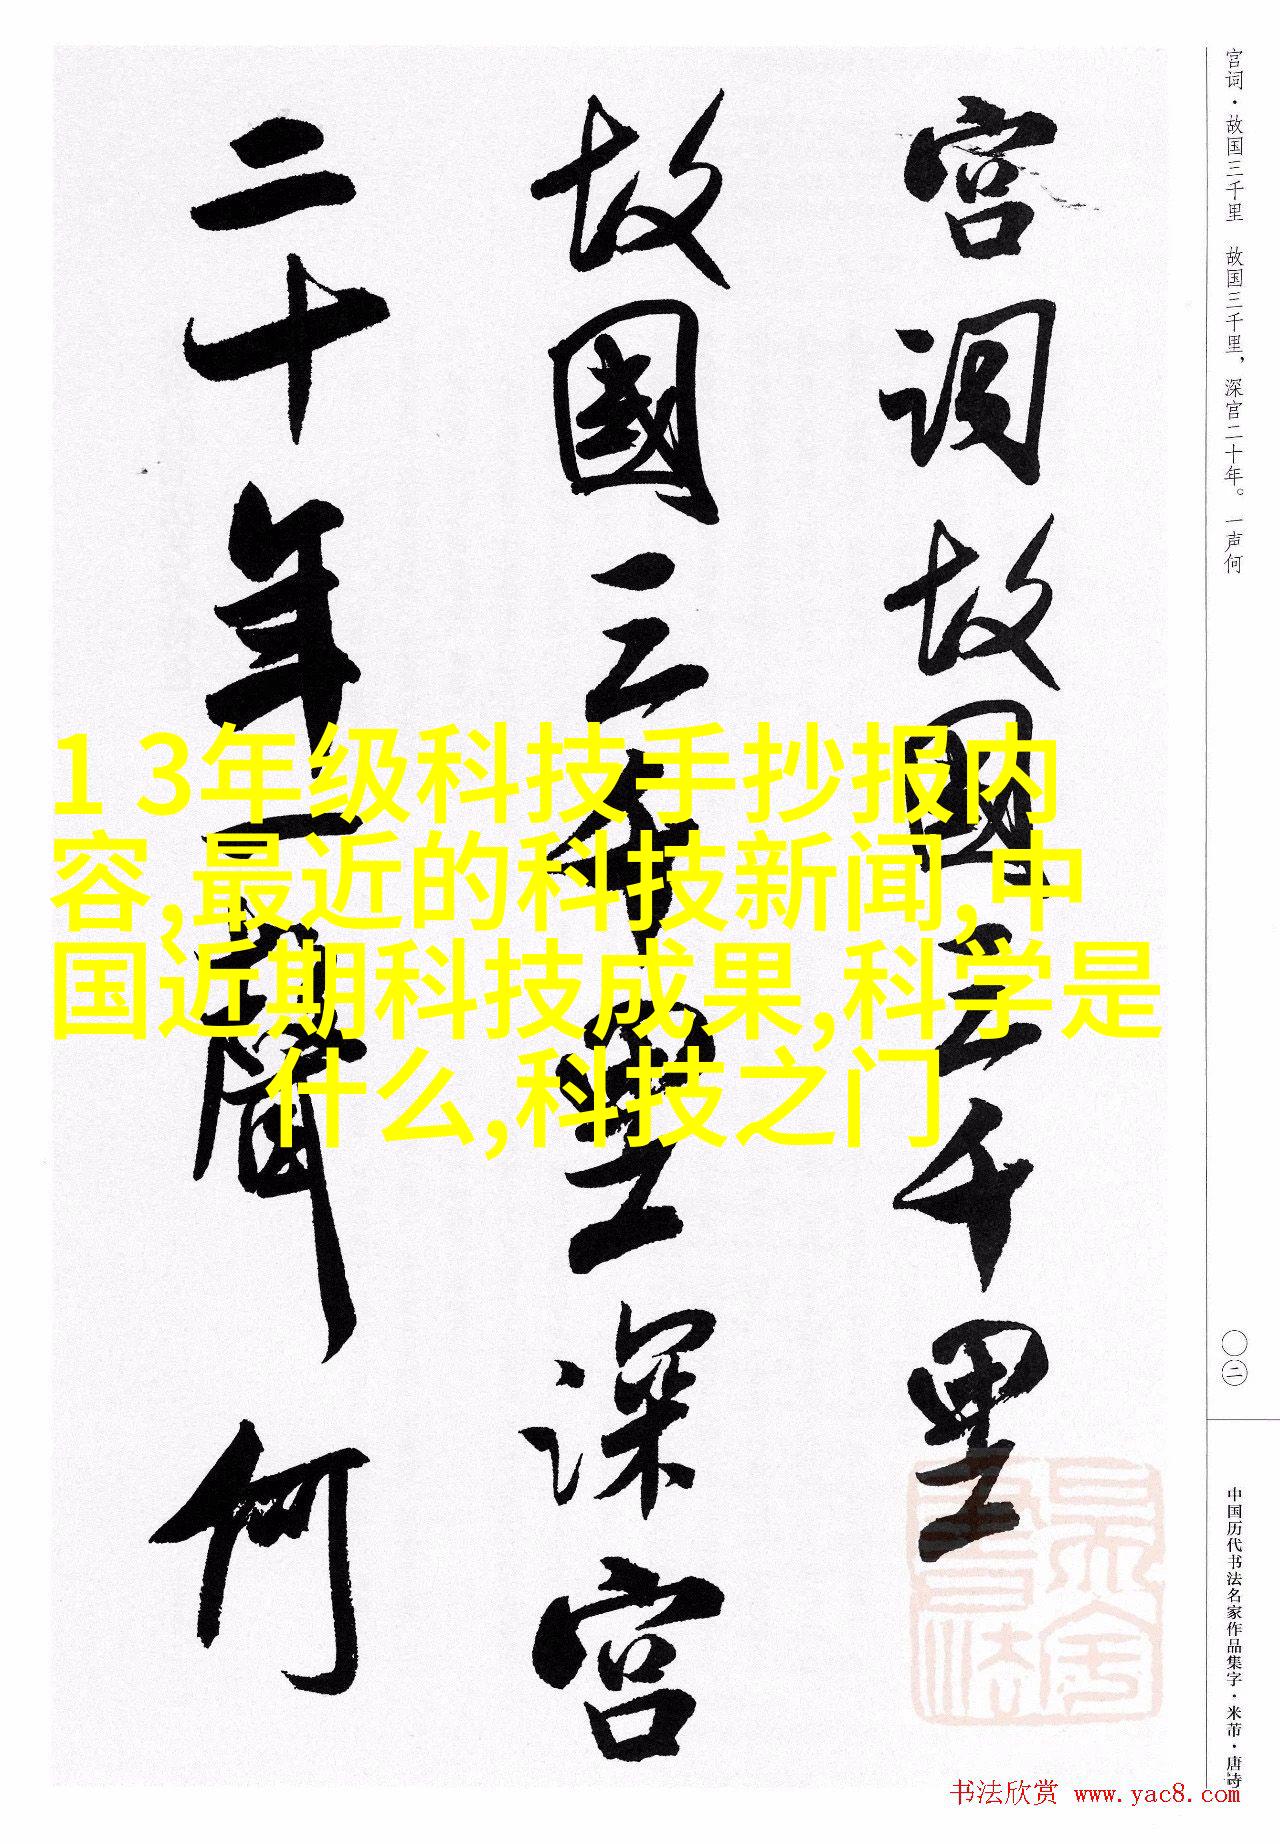 宫词故国三千里
故國三千里深宫
二十年一聲何
宫词·故国三千里　故国三千里，深宫二十年。一声何
1 3年级科技手抄报内
容,最近的科技新闻,中
国近期科技成果,科学是
什么,科技之门
〇二
中国历代书法名家作品集字·米芾·唐诗
书法欣赏 www.yac8.com